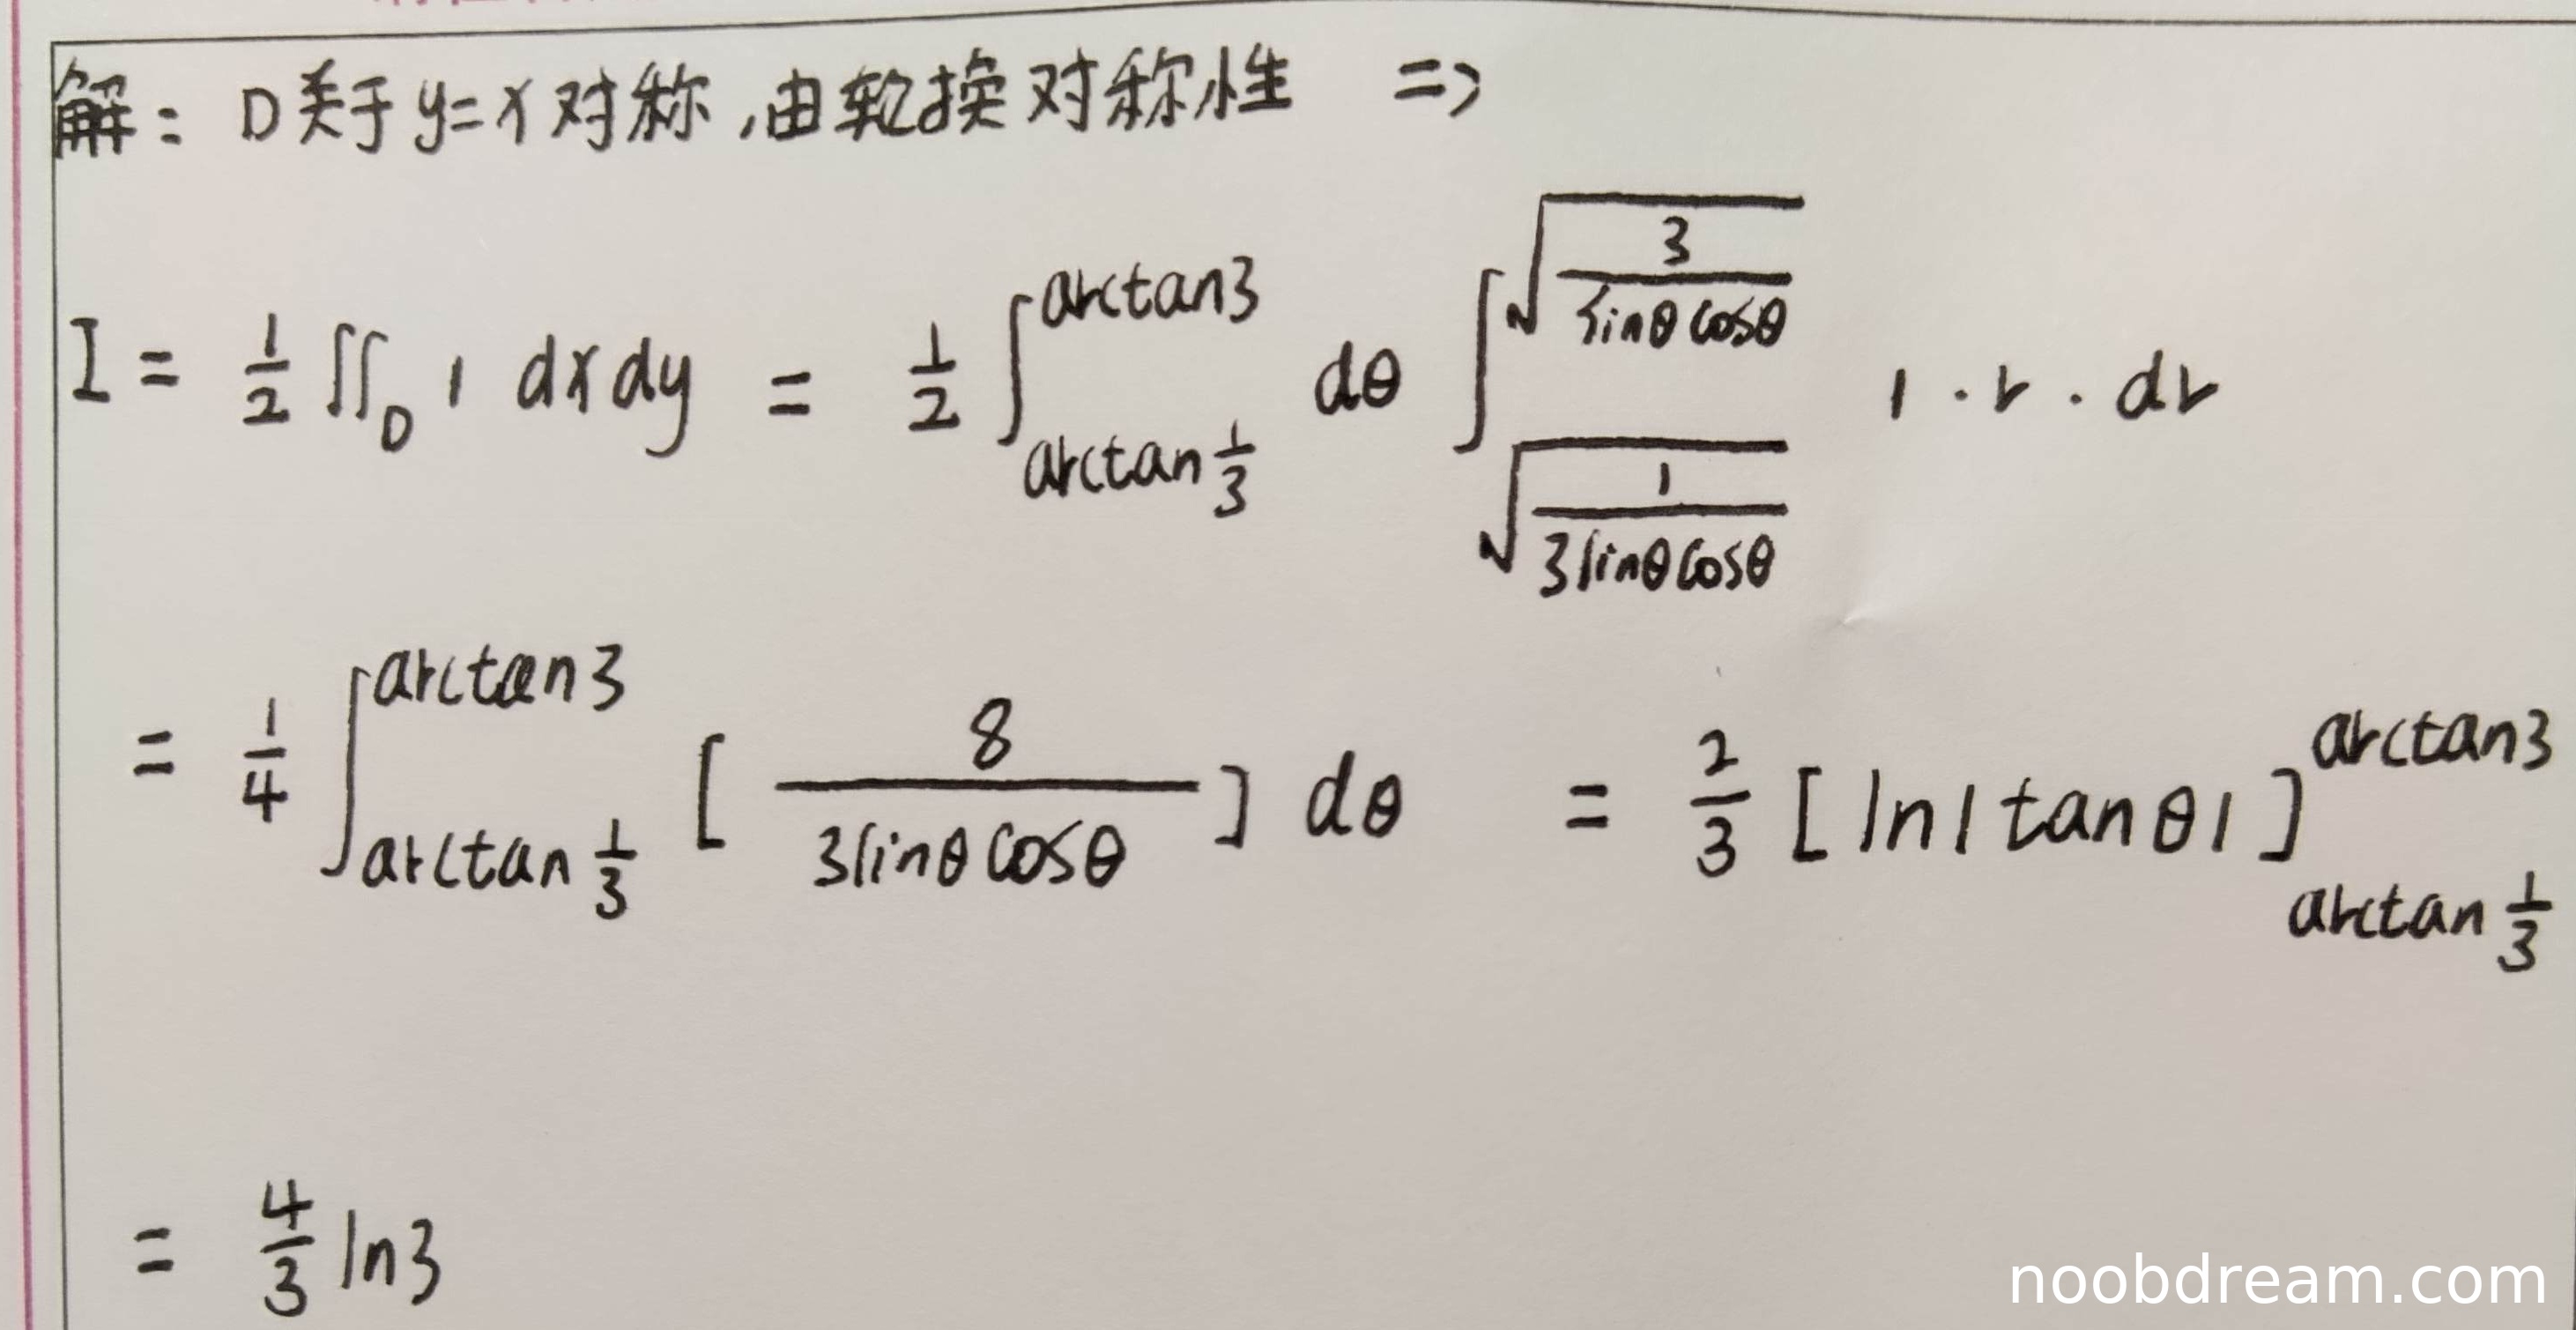 解：D关于y=x对称，由轮换对称性 =>
I = 1/2 ∬_D 1 dxdy = 1/2 ∫_{arctan 1/3}^{arctan3} dθ ∫_{√(1/(3sinθcosθ))}^{√(3/(sinθcosθ))} 1·r·dr
= 1/4 ∫_{arctan 1/3}^{arctan3} [8/(3sinθcosθ)] dθ = 2/3 [ln|tanθ|]_{arctan 1/3}^{arctan3}
= 4/3 ln3
noobdream.com